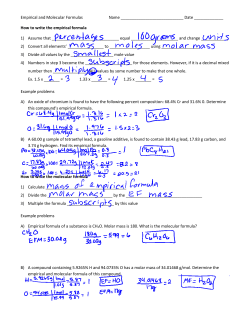 Empirical and Molecular Formulas Name Date
How to write the empirical formula
1) Assume that percentages equal 100 grams and change units
2) Convert all elements' mass to moles using molar mass
3) Divide all values by the smallest mole value
4) Numbers in step 3 become the subscripts for those elements. However, if it is a decimal mixed
number then multiply values by some number to make that one whole.
Ex. 1.5 x 2 = 3 1.33 x 3 = 4 1.25 x 4 = 5
Example problems
A) An oxide of chromium is found to have the following percent composition: 68.4% Cr and 31.6% O. Determine
this compound's empirical formula.
Cr₂O₃
B) A 60.00 g sample of tetraethyl lead, a gasoline additive, is found to contain 38.43 g lead, 17.83 g carbon, and
3.74 g hydrogen. Find its empirical formula.
PbC₈H₂₀
How to write the molecular formula
1) Calculate mass of empirical formula
2) Divide the molar mass by the EF mass
3) Multiple the formula subscripts by this value
Example problems
A) Empirical formula of a substance is CH₂O. Molar mass is 180. What is the molecular formula?
EFM = 30.03g
C₆H₁₂O₆
B) A compound containing 5.92665% H and 94.07335% O has a molar mass of 34.01468 g/mol. Determine the
empirical and molecular formula of this compound.
EF = HO
MF = H₂O₂